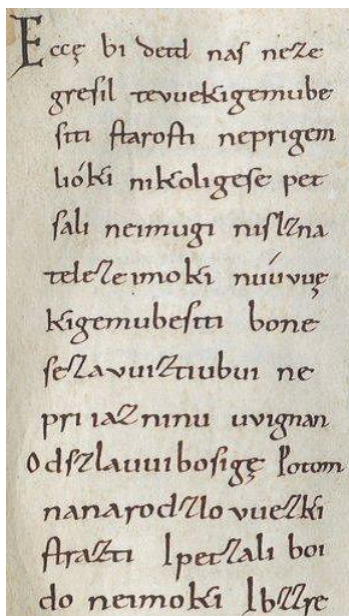 Eccę bi detd naſ neze
greſil tevuekigemube
ſiti ſtaroſti neprigem
lióki nikoligeſe pet
ſali neimugi niſlzna
teleze imoki núúvuę
kigemubeſiti bone
ſezavuiztiubui ne
pri iazninu uvignan
Odſzlauuiboſigę Potom
nanarodzlo vuezki
ſtrazti Ipetzali boi
do neimoki Ibzzre